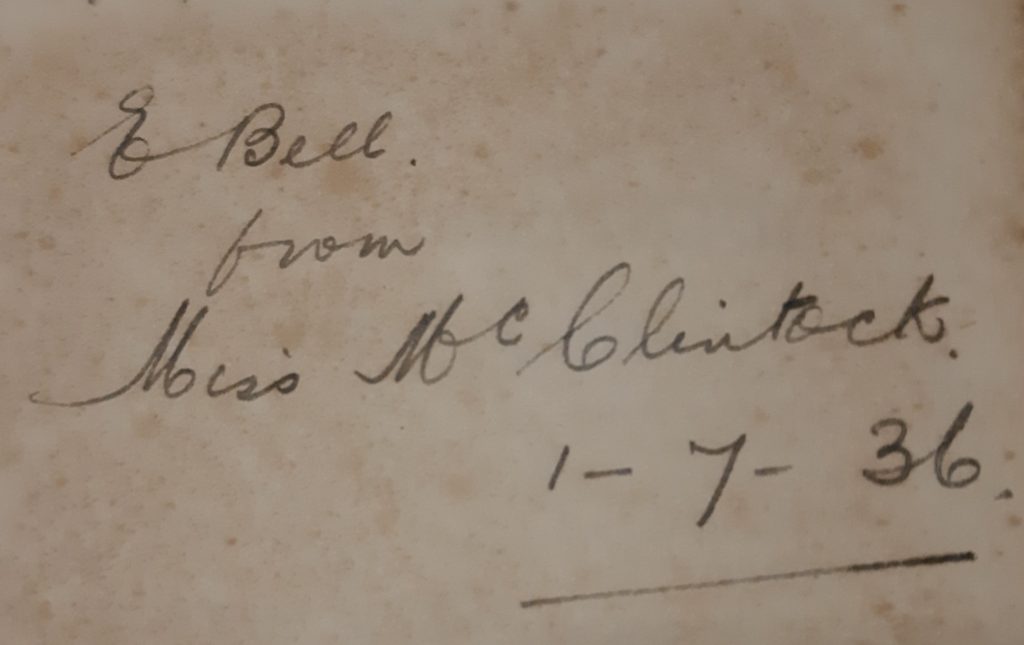 E Bell.
from
Miss Mc Clintock.
1-7-36.